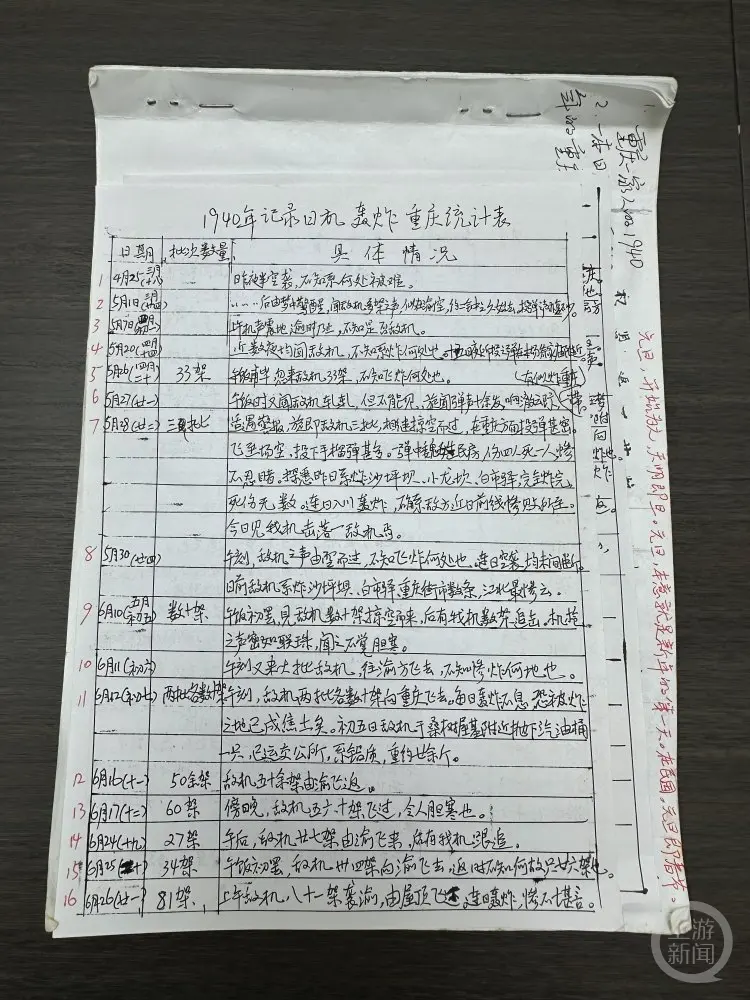 1940年记录日机轰炸重庆统计表
日期 批次数量 具体情况
1 4月25(三月十八) 昨夜半空袭，不知系何处被难。
2 5月1日(三月廿四) ……后由梦中惊醒，闻敌机
3 5月7日 不知是否敌机。
4 5月20(四月十四) 近数夜均闻敌机，不知系炸何处也
5 5月26(四月二十) 33架 午饭甫毕忽来敌机33架，不知飞炸何处也。
(有似炸重庆)
6 5月27(廿一) 午饭时又闻敌机轧轧，但不能见，旋闻弹声
7 5月28(廿二) 三批 旋即敌机三批，相连掠空而过，在重庆方面投弹甚密。
投下手榴弹甚多。 民房，伤四人死一人，惨
不忍睹。探悉昨日系炸沙坪坝、小龙坎、白市驿，完全炸完，
死伤无数。连日入川轰炸，
今日见我机击落一敌机焉。
8 5月30(廿四) 午刻，敌机之声由空而过，不知飞炸何处也，连日空袭，均未间断
日前敌机系炸沙坪坝、白市驿重庆街市数条，江北最惨云。
9 6月10(五月初五) 数十架 午饭初罢，见敌机数十架掠空而来，后有我机数架追击，机枪
之声密如联珠，闻之不觉胆寒。
10 6月11(初六) 午刻又来大批敌机，往渝方飞去，不知惨炸何地也。
11 6月12(初七) 两批各数十架 午刻，敌机两批各数十架向重庆飞去。每日轰炸不息，恐被炸
之地已成焦土矣。初五日敌机于桑树屋基附近抛下汽油桶
一只，已运交公所，系铝质，重约廿余斤。
12 6月16(十一) 50余架 敌机五十余架由渝飞返。
13 6月17(十二) 60架 傍晚，敌机五六十架飞过，令人胆寒也。
14 6月24(十九) 27架 午后，敌机廿七架由渝飞来，后有我机跟追。
15 6月25(二十) 34架 午饭初罢，敌机卅四架向渝飞去。返时不知何故只廿六架也。
16 6月26(廿一) 81架 上午敌机八十一架袭渝，由屋顶飞过。连日轰炸，惨不堪言。
1. 重庆一家人的1940
2. 一本日
年的重庆
元旦，开始为元，天明即旦。元旦，本意就是新年的第一天。在民国，元旦即春节。
上游新闻